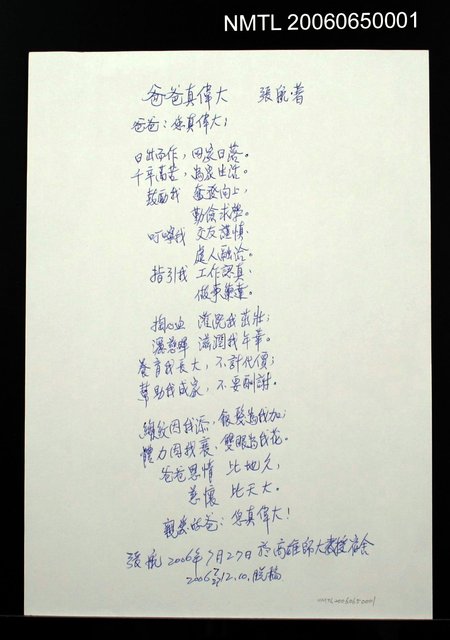 NMTL 20060650001
爸爸真偉大 張航·著
爸爸:您真偉大;
日出而作,回家日落。
千辛萬苦,為家生活。
鼓勵我 奮發向上,
勤儉求學。
叮嚀我 交友謹慎,
處人融洽。
指引我 工作認真,
做事樂達。
掏心血 灌溉我茁壯;
灑慈暉 滋潤我年華。
養育我長大,不計代價;
幫助我成家,不要酬謝。
皺紋因我添,銀髮為我加;
體力因我衰,雙眼為我花。
爸爸恩情 比地久,
慈懷 比天大。
親愛的爸:您真偉大!
張航 2006年7月27日於高雄師大教授宿舍
2006 12.10.脫稿
NMTL20060650001